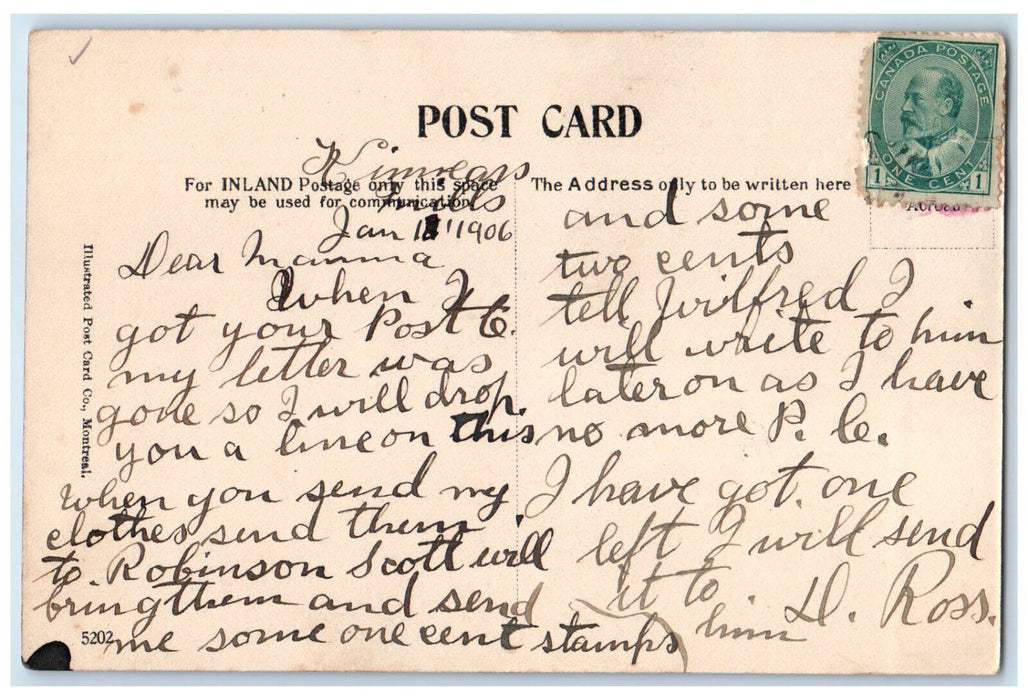 POST CARD
For INLAND Postage only this space
may be used for communication.
The Address only to be written here
CANADA POSTAGE
ONE CENT
1 1
Illustrated Post Card Co., Montreal.
Kinnears
Mills
Jan 1906
Dear Mamma
When I
got your Post C.
my letter was
gone so I will drop
you a line on this
when you send my
clothes send them
to Robinson Scott will
bring them and send
me some one cent stamps
and some
two cents
tell Wilfred I
will write to him
later on as I have
no more P. C.
I have got one
left I will send
it to
him
D. Ross.
5202